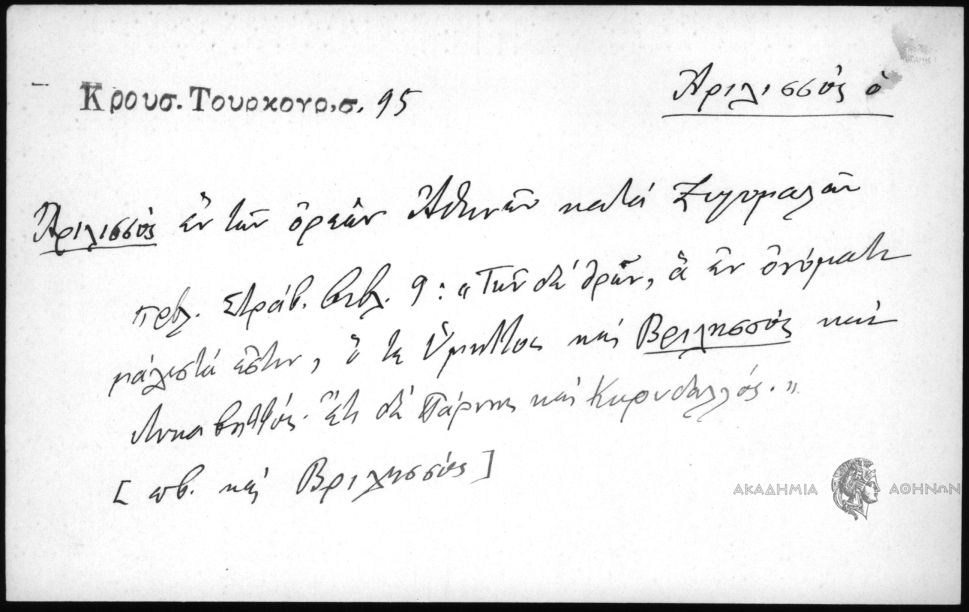 Κρουσ. Τουρκογρ. σ. 95
Ἀριλισσὸς ὁ
Ἀριλισσὸς ἓν τῶν ὀρέων Ἀθηνῶν κατὰ Ζυγομαλᾶν
πρβλ. Στράβ. βιβλ. 9 : "Τῶν δὲ ὀρῶν, ἃ ἐν ὀνόματι
μάλιστά ἐστιν, ὅ τε Ὑμηττὸς καὶ Βριλησσὸς καὶ
Λυκαβηττός. Ἔτι δὲ Πάρνης καὶ Κορυδαλλός."
[ πβ. καὶ Βριλησσὸς ]
ΑΚΑΔΗΜΙΑ ΑΘΗΝΩΝ